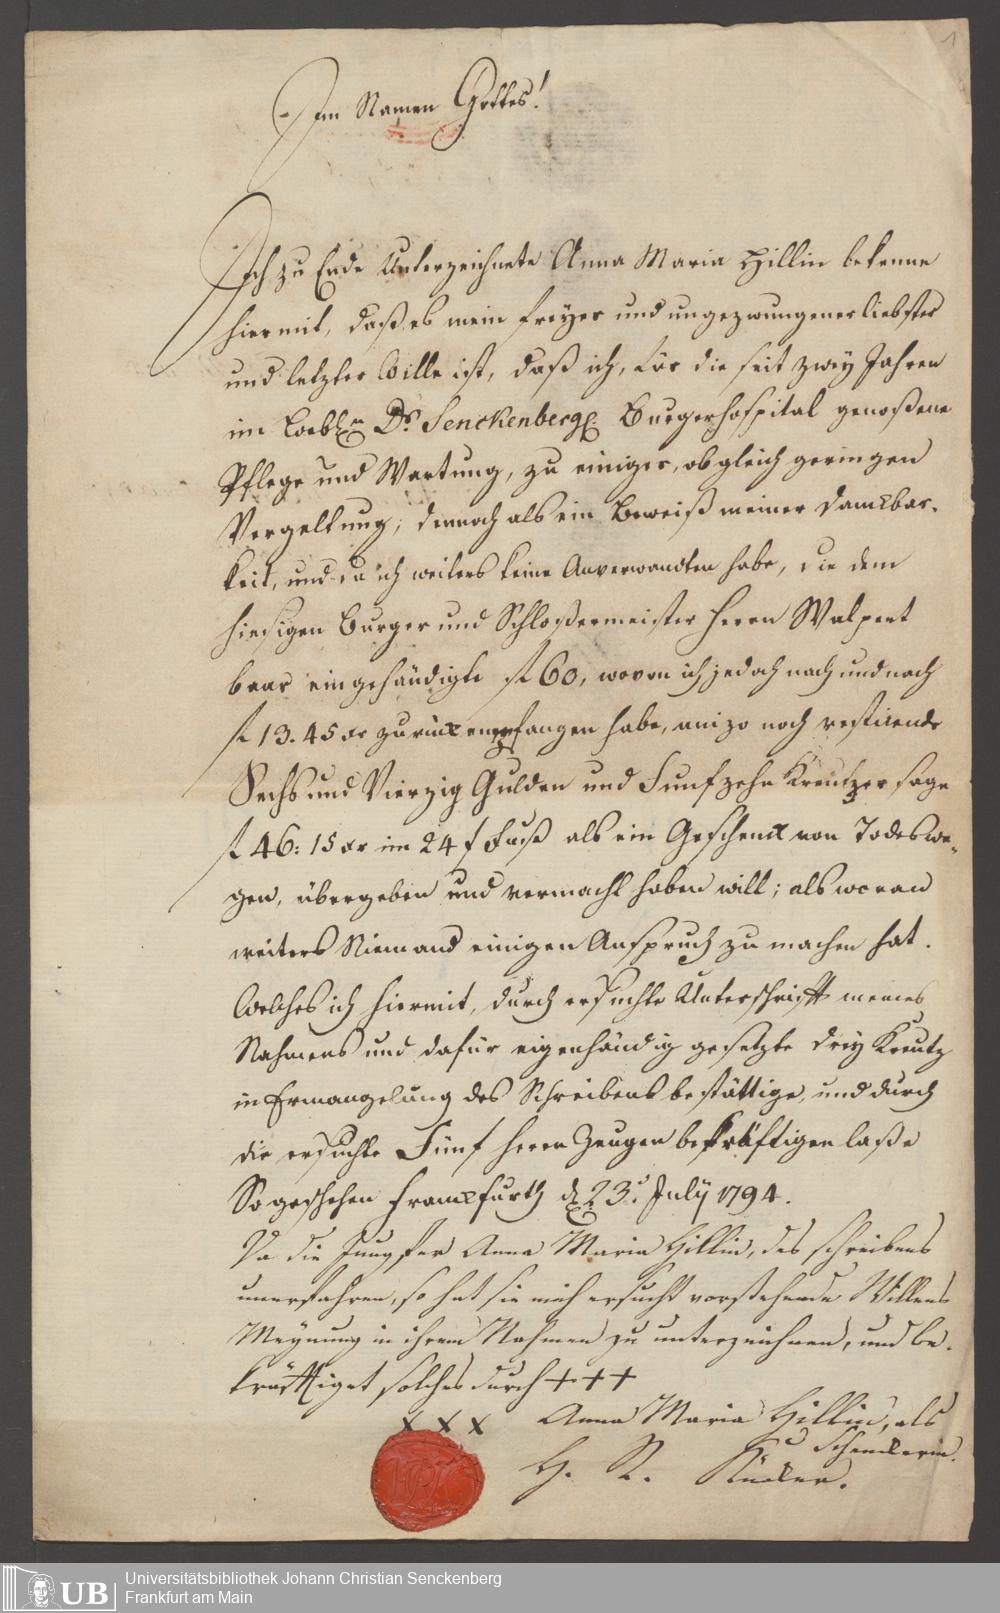 1
Im Namen Gottes!
Ich zu Ende Unterzeichnete Anna Maria Hillin bekenne
hiermit, daß es mein freyer und ungezwungener liebster
und letzter Wille ist, daß ich, für die seit zwey Jahren
im Loebln Dr. Senckenberg. Burgerhospital genoßene
Pflege und Wartung, zu einiger, obgleich geringen
Vergeltung, dennoch als ein Beweiß meiner Danckbar-
keit, und da ich weiters keine Anverwandten habe, die dem
hiesigen Burger und Schloßermeister Herrn Walpert
baar eingehändigte fl 60, wovon ich jedoch nach und nach
fl 13. 45 xr zurück empfangen habe, anizo noch restirende
Sechs und Vierzig Gulden und Funfzehn Kreutzer sage
fl 46: 15 xr im 24 f Fuß als ein Geschenck von Todeswe-
gen, übergeben und vermacht haben will; als woran
weiters Niemand einigen Anspruch zu machen hat.
Welches ich hiermit, durch ersuchte Unterschrifft meines
Nahmens und dafür eigenhändig gesetzte drey Kreutz
in Ermangelung des Schreibens bestättige, und durch
die ersuchte Fünf Herrn Zeugen bekräftigen laße
So geschehen Franckfurth d. 23. July 1794.
Da die Jungfer Anna Maria Hillin, des schreibens
unerfahren, so hat sie mich ersucht vorstehende Willens
Meynung in ihrem Nahmen zu unterzeichnen, und be-
kräfftiget solches durch +++
x x x Anna Maria Hillin, als
Schenckerin.
H. R.
UB
Universitätsbibliothek Johann Christian Senckenberg
Frankfurt am Main